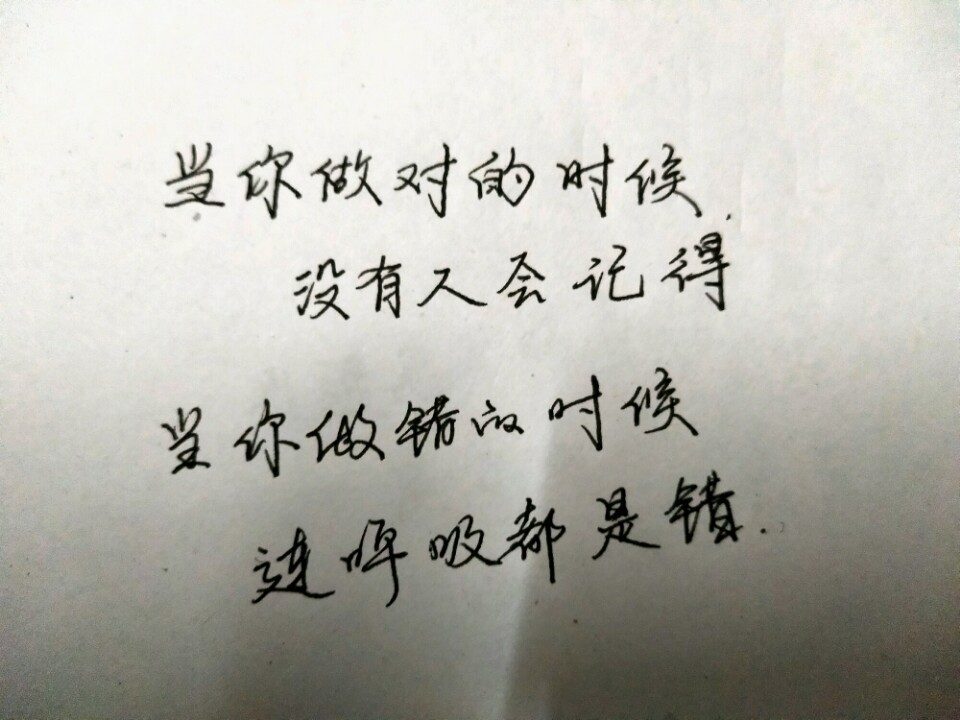 当你做对的时候.
没有人会记得
当你做错的时候
连呼吸都是错.